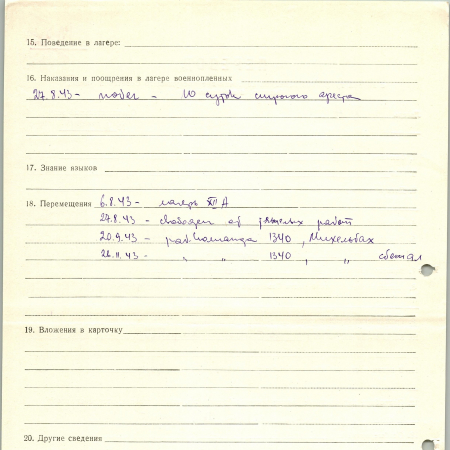 15. Поведение в лагере:
16. Наказания и поощрения в лагере военнопленных
27.8.43 - побег - 10 суток строгого ареста
17. Знание языков
18. Перемещения 6.8.43 - лагерь XII A
27.8.43 - свободен от тяжелых работ
20.9.43 - раб. команда 1340, Михельбах
11.43 - " " 1340, " сбежал
19. Вложения в карточку
20. Другие сведения